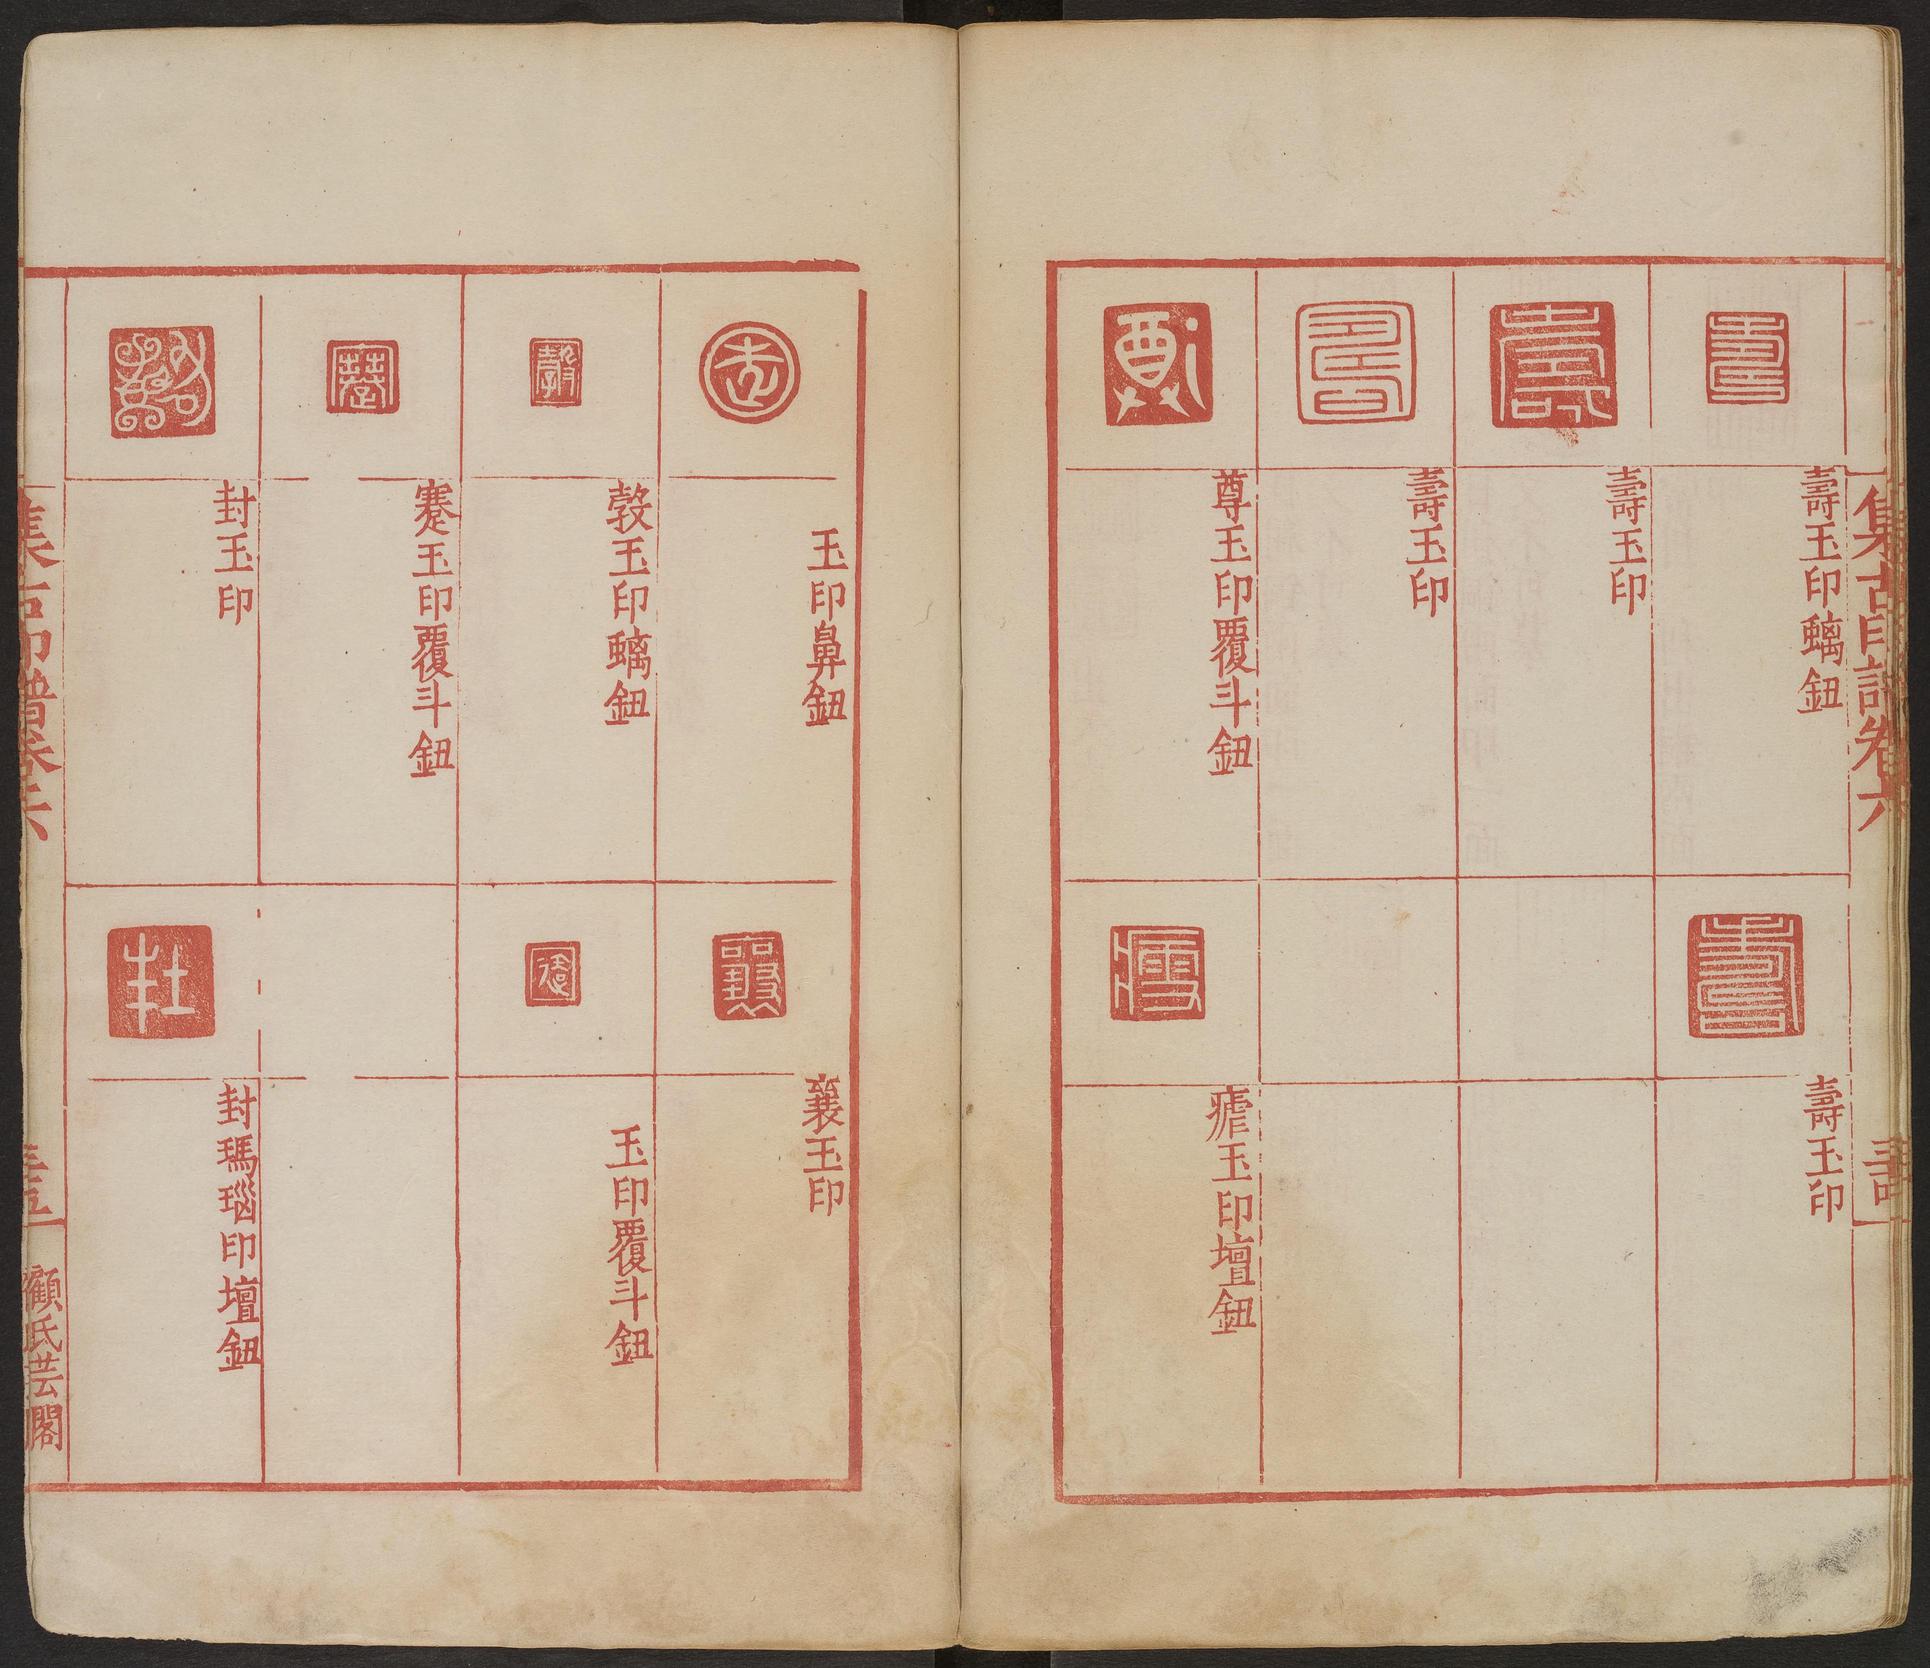 集古印譜卷六
壽玉印螭鈕
壽玉印
壽玉印
尊玉印覆斗鈕
壽玉印
瘧玉印壇鈕
玉印鼻鈕
玉印螭鈕
蹇玉印覆斗鈕
封玉印
襄玉印
玉印覆斗鈕
封瑪瑙印壇鈕
集古印譜卷六
顧氏芸閣